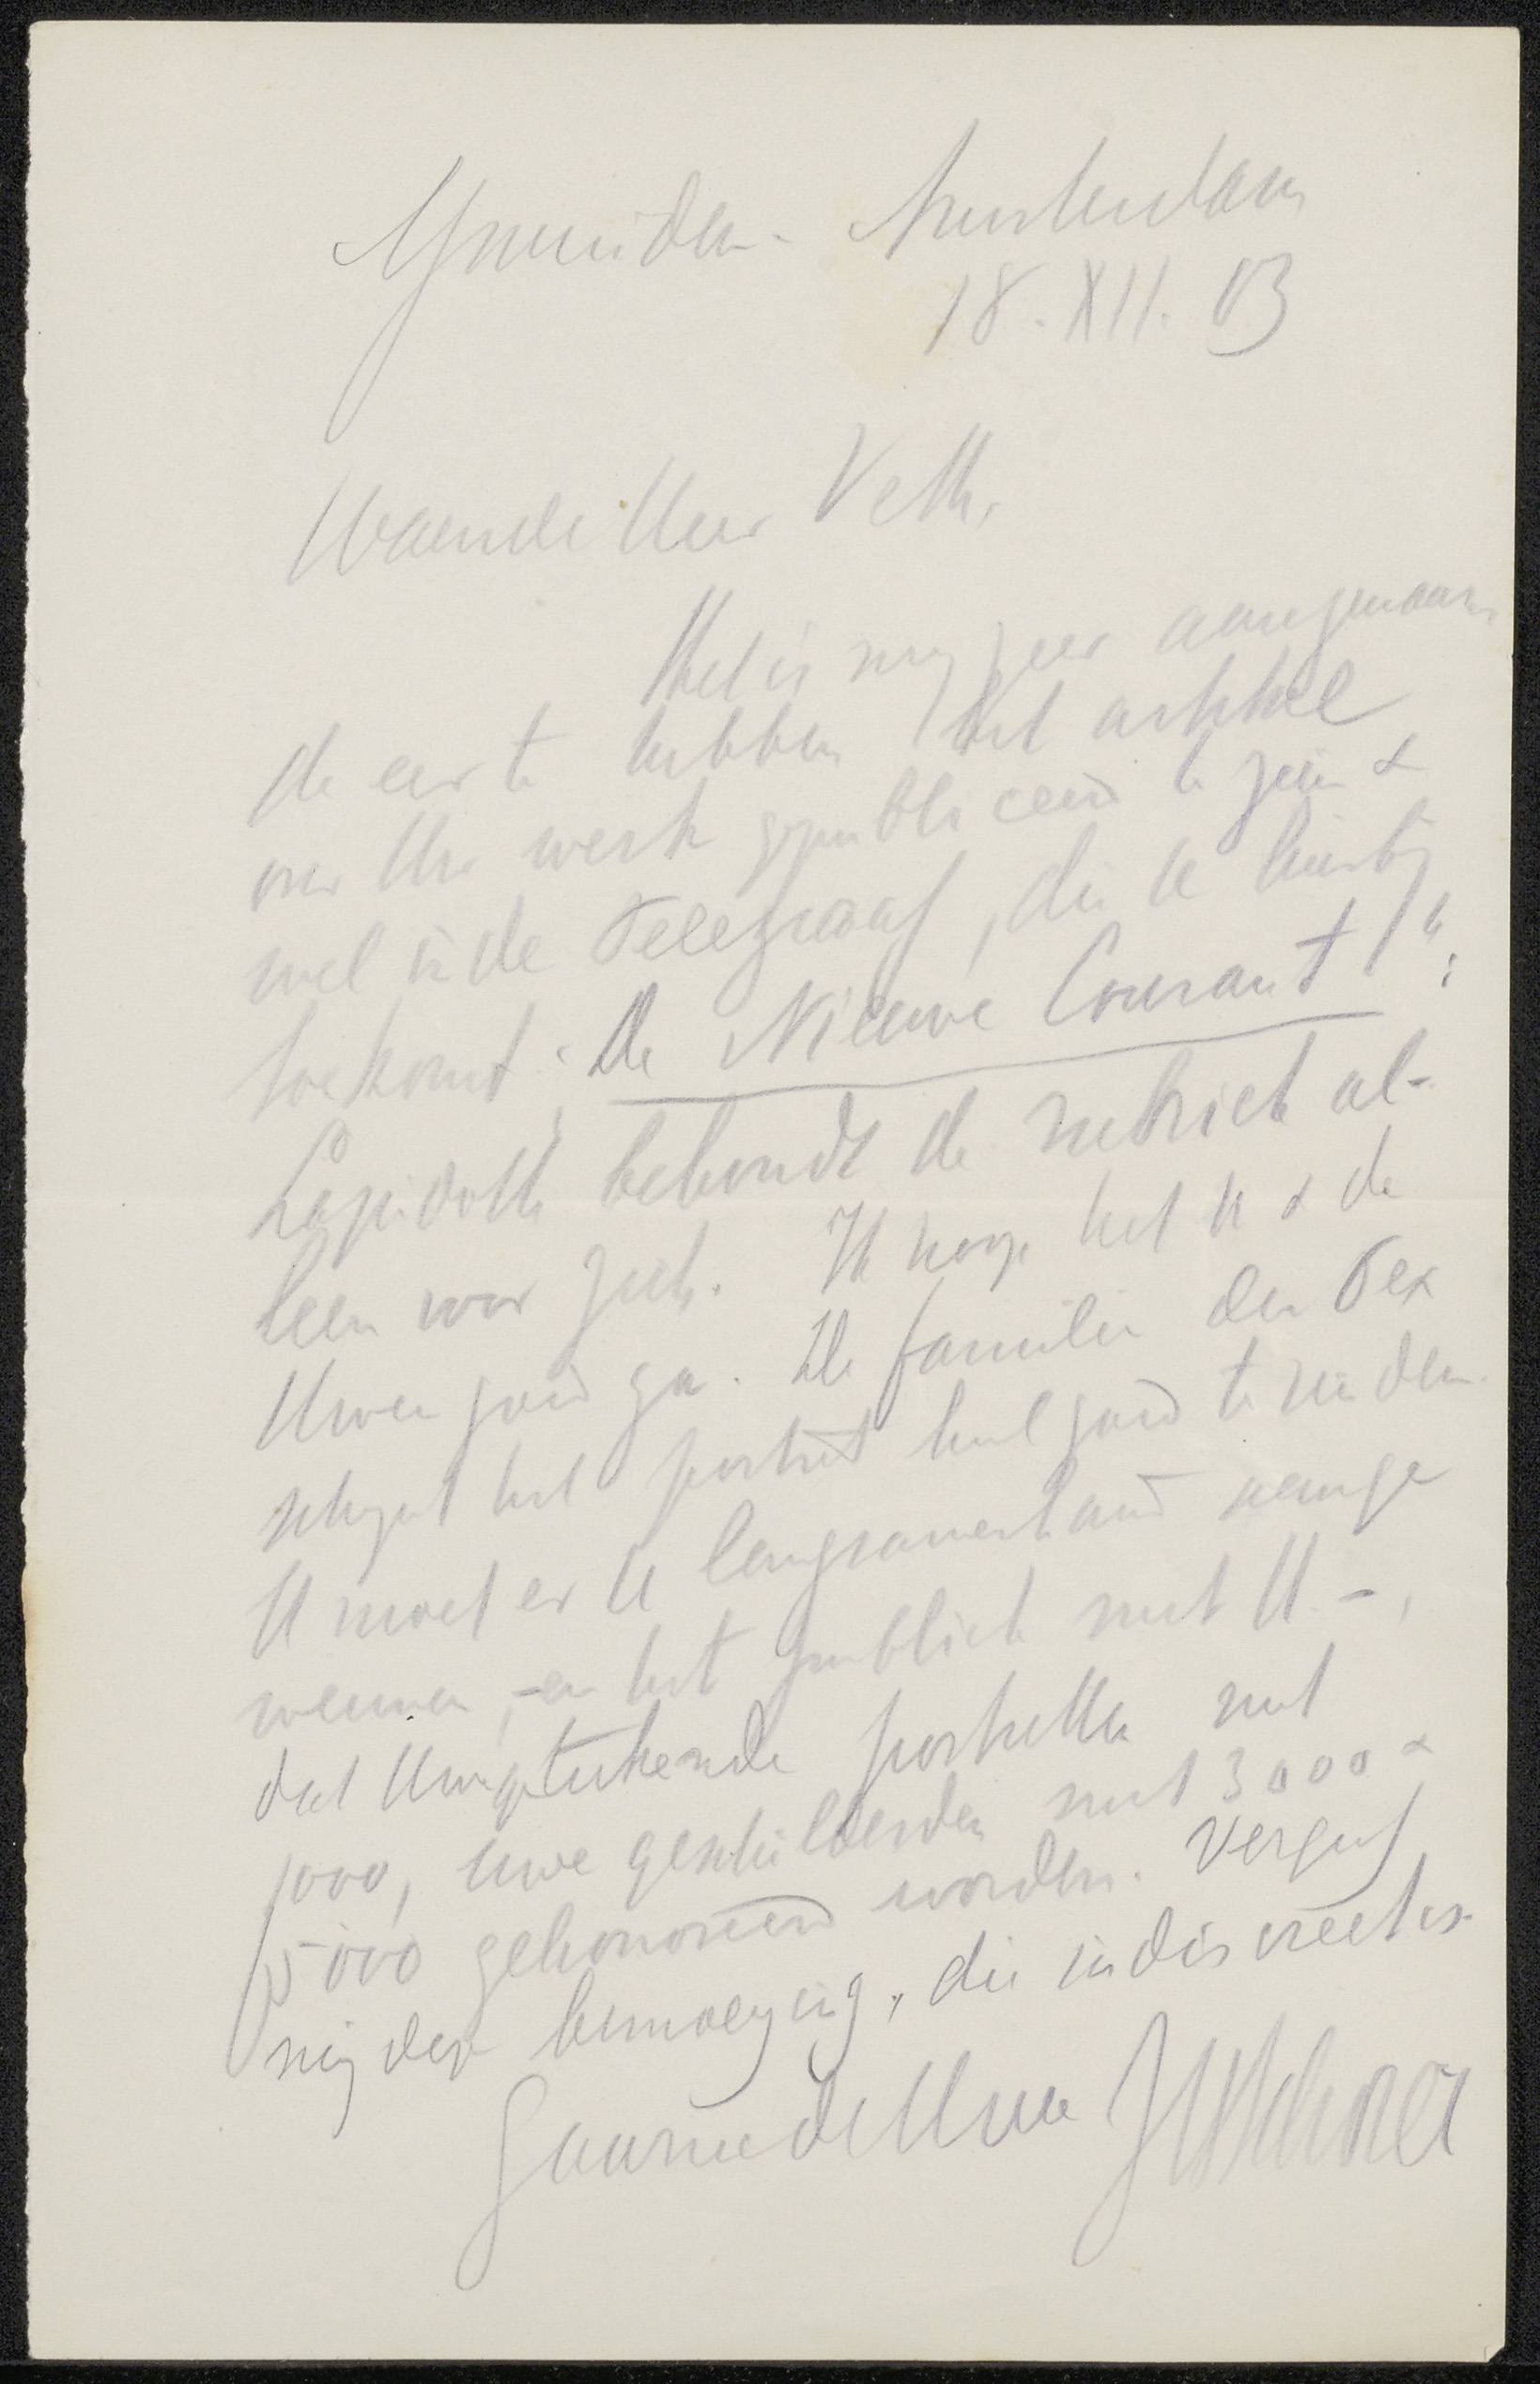 IJmuiden - Amsterdam
18. XII. 03
Waarde Heer Veth,
Het is mij zeer aangenaam
de eer te hebben het artikel
over Uw werk gepubliceerd te zien &
wel in de Telegraaf, die U hierbij
toekomt. "De Nieuwe Courant!":
Lapidoth behoudt de rubriek al-
leen voor zich. Ik hoop het U & de
Uwen goed ga. De familie den Tex
schijnt het portret heel goed te vinden.
U moet er U langzamerhand aan ge
wennen, -en het publiek met U -,
dat Uw geteekende portretten met
1000, Uwe geschilderden met 3000 &
5000 gehonoreerd worden. Vergeef
mij deze bemoeying, die indiscreet is.
Gaarne de Uwe